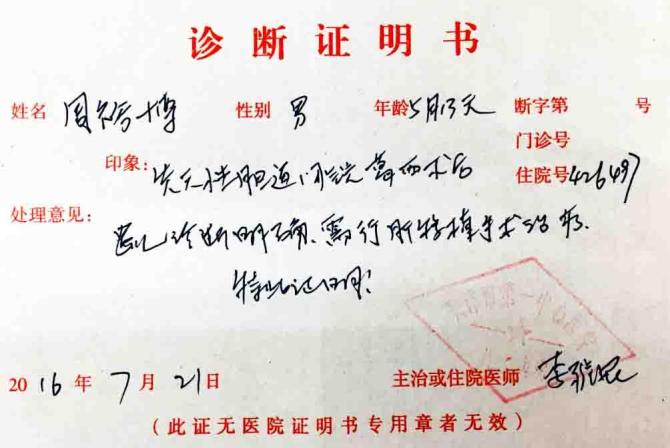 诊断证明书
姓名 周 博 性别 男 年龄 5月13天 断字第 号
门诊号
印象: 先天性胆道闭锁葛西术后 住院号 426497
处理意见: 患儿诊断明确、需行肝移植手术治疗、
特此证明!
2016年7月21日 主治或住院医师 李
(此证无医院证明书专用章者无效)